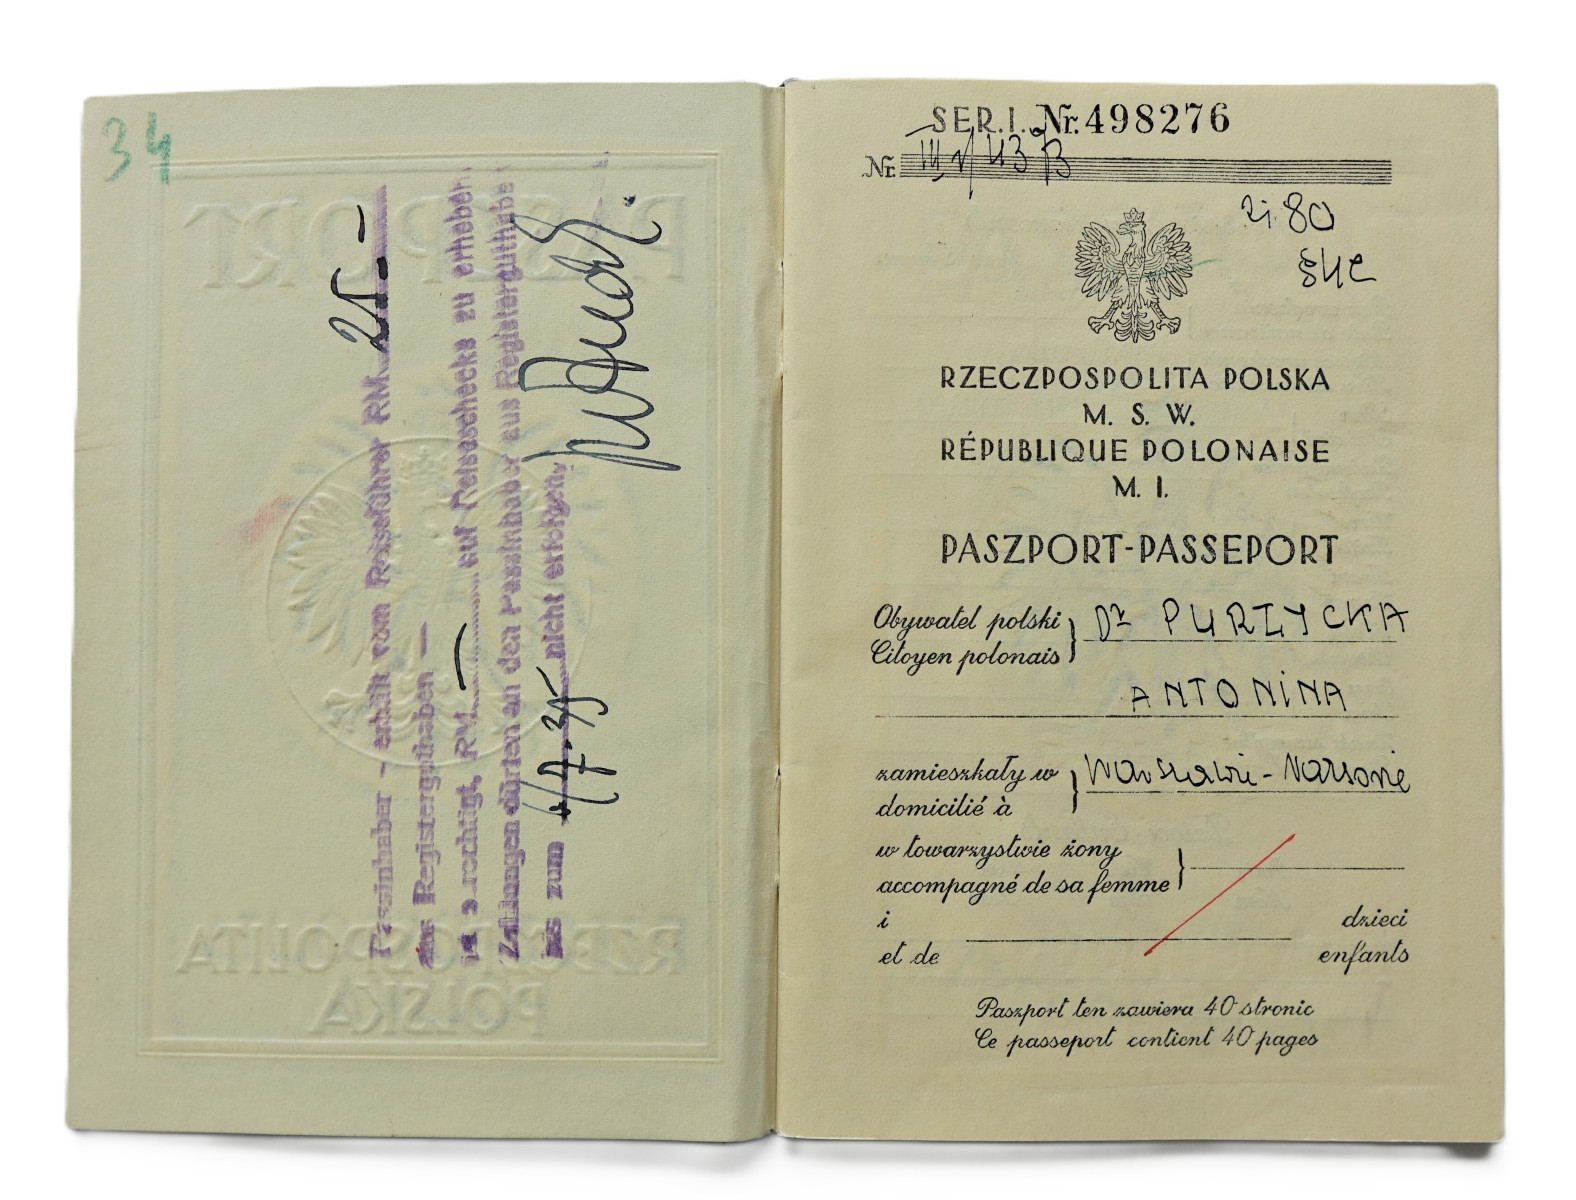 34
Passinhaber - erhält vom Reiseführer RM 25.-
Registerguthaben -
RM — auf Reiseschecks zu erheben.
Zahlungen dürfen an den Passinhaber aus Registerguthaben
bis zum nicht erfolgen.
SER. I. Nr. 498276
Nr.
80
RZECZPOSPOLITA POLSKA
M. S. W.
RÉPUBLIQUE POLONAISE
M. I.
PASZPORT-PASSEPORT
Obywatel polski
Citoyen polonais
Dr PURZYCKA
ANTONINA
zamieszkały w
domicilié à
Warszawie - Varsovie
w towarzystwie żony
accompagné de sa femme
i dzieci
et de enfants
Paszport ten zawiera 40 stronic
Ce passeport contient 40 pages
PASZPORT
RZECZPOSPOLITA
POLSKA